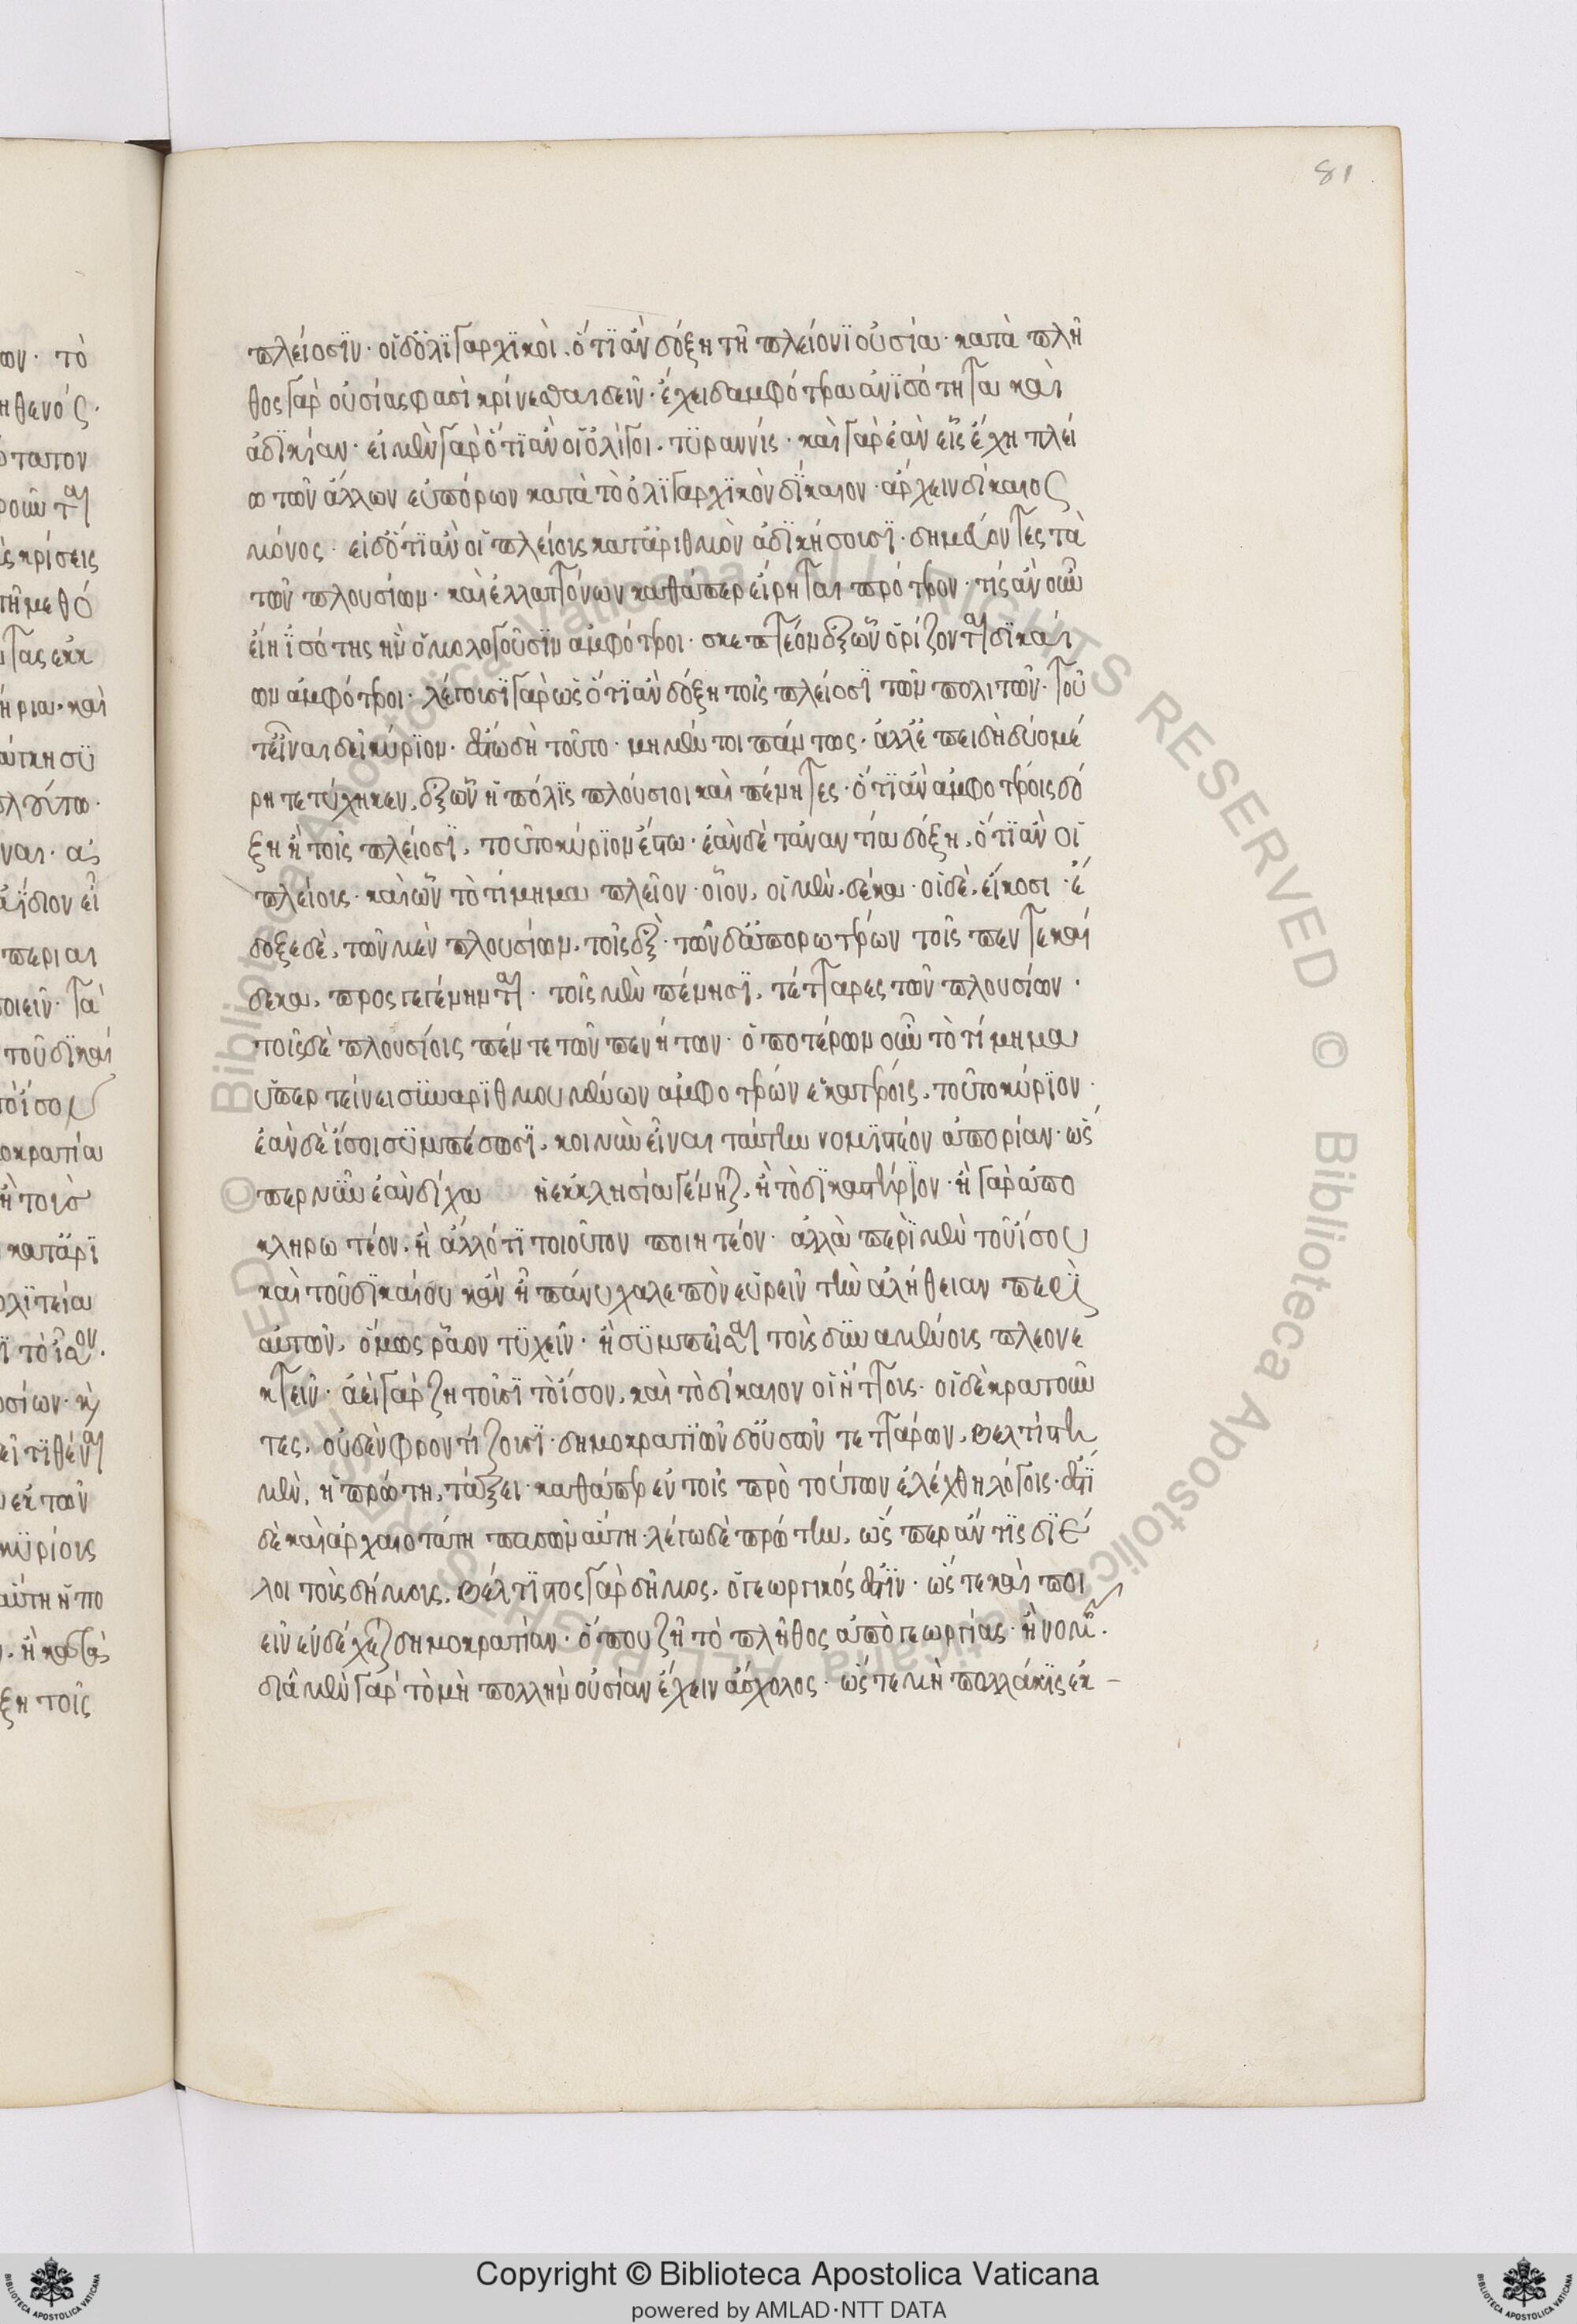 81
πλείοσϊν· οἱ δ' ὀλϊγαρχϊκοὶ, ὅ τϊ ἂν δόξη τῆ πλείονϊ οὐσία· κατὰ πλῆ
θος γὰρ οὐσίας φασὶ κρίνεσθαι δεῖν· ἔχει δ' ἀμφότερα ἀνϊσότητα καὶ
ἀδϊκίαν· εἰ μὲν γὰρ ὅ τϊ ἂν οἱ ὀλίγοι, τϋραννίς· καὶ γὰρ ἐὰν εἷς ἔχη πλεί
ω τῶν ἄλλων εὐπόρων κατὰ τὸ ὀλϊγαρχϊκὸν δίκαιον· ἄρχειν δίκαιος
μόνος· εἰ δ' ὅ τϊ ἂν οἱ πλείους κατ' ἄριθμὸν ἀδϊκήσουσϊ· δημεύοντες τὰ
τῶν πλουσίων· καὶ ἐλλαττόνων καθάπερ εἴρηται πρότερον· τίς ἂν οὖν
εἴη ἰσότης ἣν ὁμολογοῦσϊν ἀμφότεροι· σκεπτέον ἐξ ὧν ὁρίζονται δϊκαί
ων ἀμφότεροι· λέγουσϊ γὰρ ὡς ὅ τϊ ἂν δόξη τοῖς πλείοσϊ τῶν πολιτῶν· τοῦ
τ' εἶναι δεῖ κύρϊον· ἔστω δὴ τοῦτο· μὴ μέν τοι πάντως· ἀλλ' ἐπειδὴ δύο μέ
ρη τετύχηκεν, ἐξ ὧν ἡ πόλϊς πλούσιοι καὶ πένητες· ὅ τϊ ἂν ἀμφοτέροις δό
ξη ἢ τοῖς πλείοσϊ, τοῦτο κύρϊον ἔστω· ἐὰν δὲ τἀναντία δόξη, ὅ τϊ ἂν οἱ
πλείους· καὶ ὧν τὸ τίμημα πλεῖον· οἷον, οἱ μὲν, δέκα· οἱ δὲ, εἴκοσι· ἔ
δοξε δὲ, τῶν μὲν πλουσίων, τοῖς ἓξ· τῶν δ' ἀπορωτέρων τοῖς πεντεκαί
δεκα, προσγεγένηνται· τοῖς μὲν πένησϊ, τέτταρες τῶν πλουσίων·
τοῖς δὲ πλουσίοις πέντε τῶν πενήτων· ὁποτέρων οὖν τὸ τίμημα
ὑπερτείνει συναρϊθμουμένων ἀμφοτέρων ἑκατέροις, τοῦτο κύρϊον·
ἐὰν δὲ ἴσοι σϋμπέσωσϊ, κοινὴν εἶναι ταύτην νομϊστέον ἀπορίαν· ὥς
περ νῦν ἐὰν δίχα ἡ ἐκκλησία γένηται, ἢ τὸ δϊκαστήρϊον· ἢ γὰρ ἀπο
κληρωτέον, ἢ ἄλλό τϊ τοιοῦτον ποιητέον· ἀλλὰ περὶ μὲν τοῦ ἴσου
καὶ τοῦ δϊκαίου κἂν ᾖ πάνυ χαλεπὸν εὑρεῖν τὴν ἀλήθειαν περὶ
αὐτῶν, ὅμως ῥᾷον τϋχεῖν· ἢ σϋμπεῖσαι τοὺς δυναμένους πλεονε
κτεῖν· ἀεὶ γὰρ ζητοῦσϊ τὸ ἴσον, καὶ τὸ δίκαιον οἱ ἥττους· οἱ δὲ κρατοῦν
τες, οὐδὲν φροντίζουσϊ· δημοκρατϊῶν δ' οὐσῶν τεττάρων, βελτίστη
μὲν, ἡ πρώτη, τάξει· καθάπερ ἐν τοῖς πρὸ τούτων ἐλέχθη λόγοις· ἔστϊ
δὲ καὶ ἀρχαιοτάτη πασῶν αὕτη· λέγω δὲ πρώτην, ὥς περ ἄν τϊς δϊέ
λοι τοὺς δήμους, βέλτϊστος γὰρ δῆμος, ὁ γεωργικός ἐστϊν· ὥς τε καὶ ποι
εῖν ἐνδέχεται δημοκρατίαν· ὅπου ζῆ τὸ πλῆθος ἀπὸ γεωργίας· ἢ νομῆς·
διὰ μὲν γὰρ τὸ μὴ πολλὴν οὐσίαν ἔχειν ἄσχολος· ὥς τε μὴ πολλάκϊς ἐκ –
Copyright © Biblioteca Apostolica Vaticana
powered by AMLAD·NTT DATA